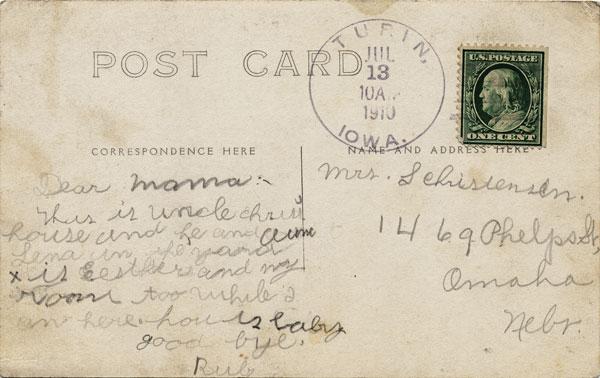 POST CARD
TURIN,
JUL
13
10A
1910
IOWA.
U.S. POSTAGE
ONE CENT
CORRESPONDENCE HERE
NAME AND ADDRESS HERE
Dear mama:-
This is uncle chris
house and he and aunt
Lena in the yard
x is Eesther and my
room too while I
am here. how is baby
good bye.
Rub
Mrs. S Christensen.
1469 Phelps St,
Omaha
Nebr.